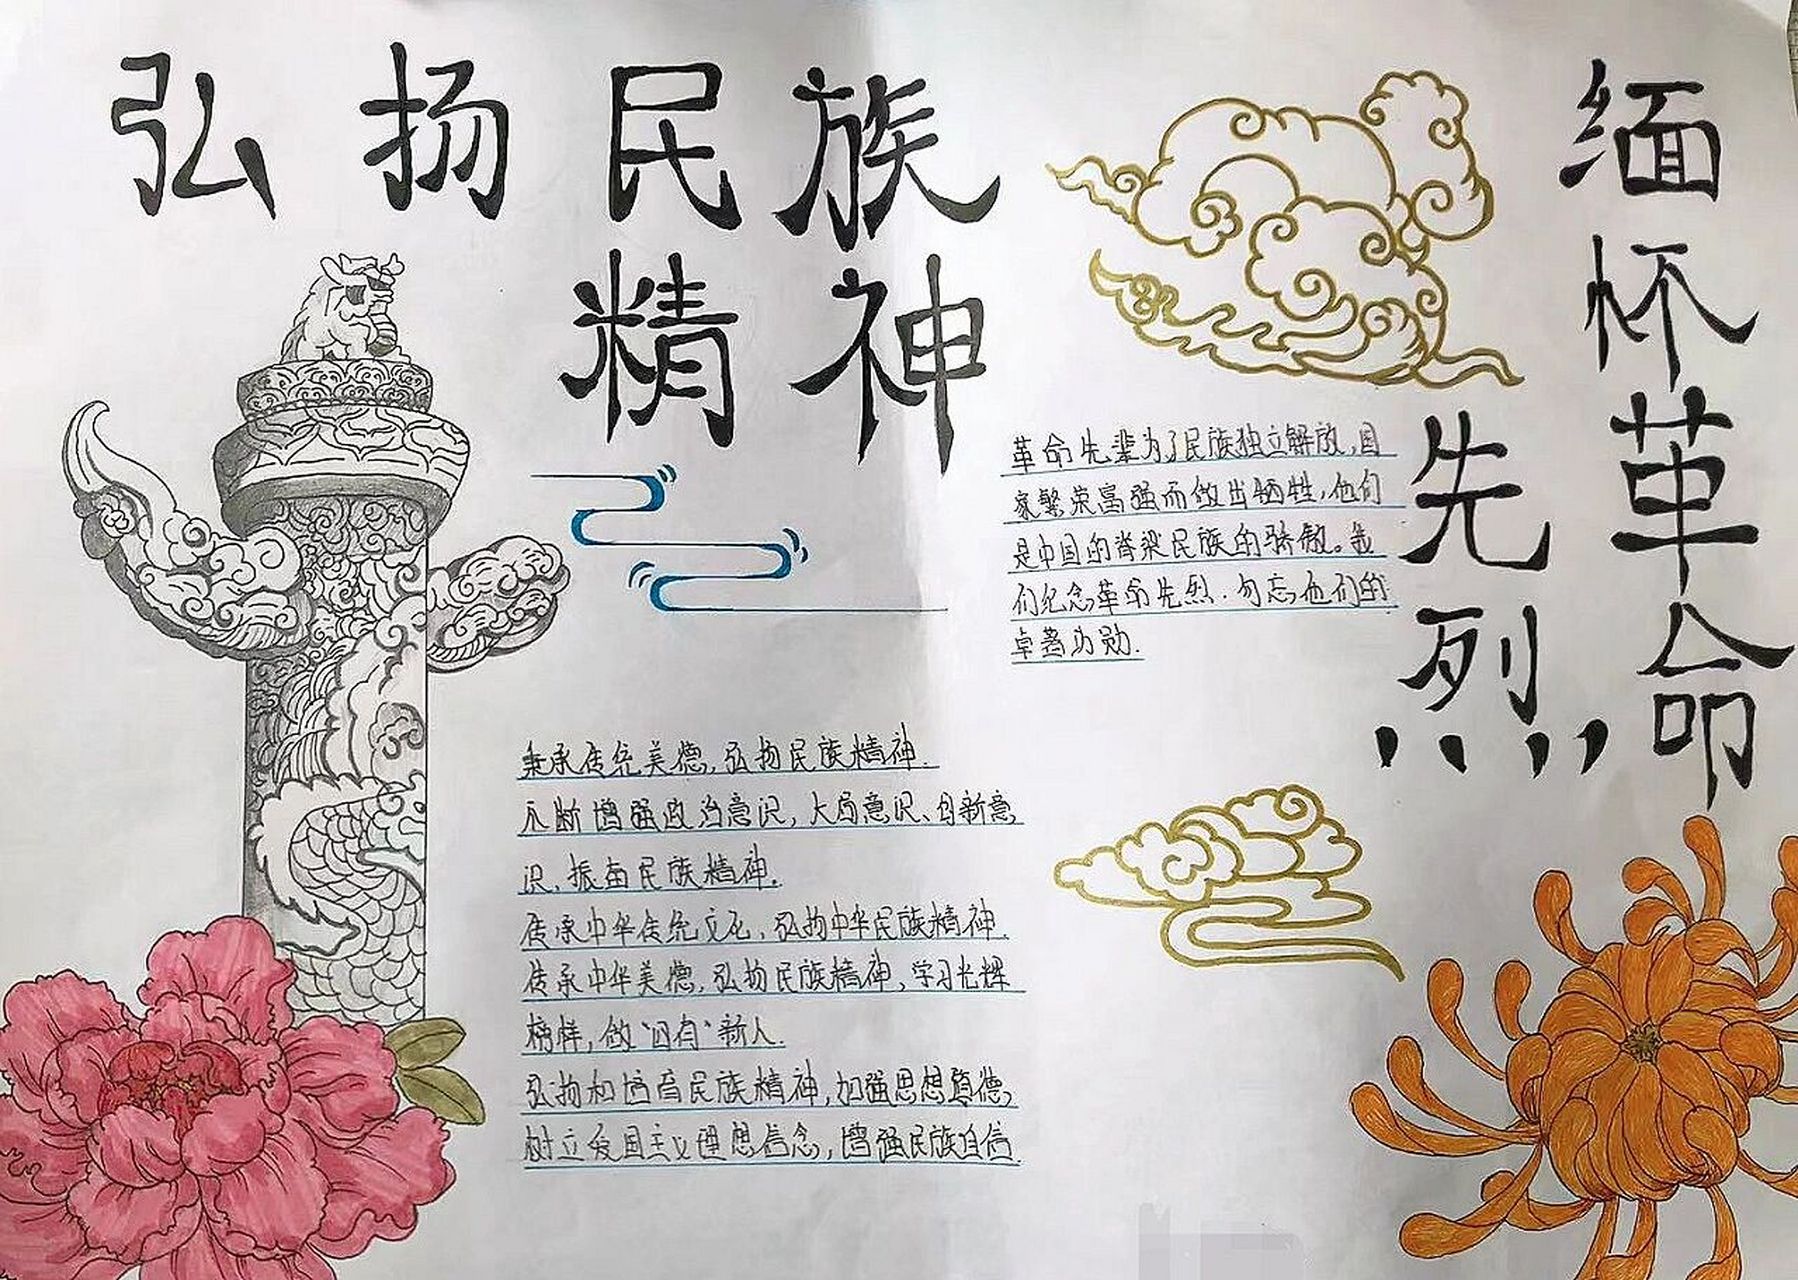 弘扬民族
精神
缅怀革命
先烈
革命先辈为了民族独立解放,国
家繁荣富强而做出牺牲,他们
是中国的脊梁民族的骄傲。我
们纪念革命先烈.勿忘他们的
卓著功勋.
秉承传统美德,弘扬民族精神.
不断增强政治意识,大局意识、创新意
识、振奋民族精神.
传承中华传统文化,弘扬中华民族精神.
传承中华美德,弘扬民族精神,学习光辉
榜样,做"四有"新人.
弘扬和培育民族精神,加强思想道德,
树立爱国主义理想信念,增强民族自信.